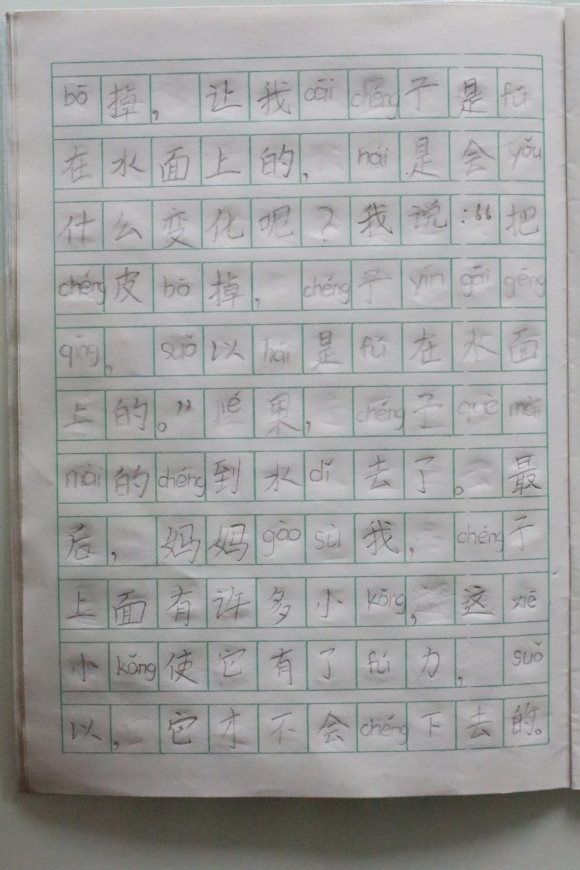 bō掉，让我cāi chéng子是fú
在水面上的，hái是会yǒu
什么变化呢？我说：“把
chéng皮bō掉，chéng子yīn gāi gēng
qīng，suǒ以hái是fú在水面
上的。”jié果，chéng子què màn
màn的chéng到水dǐ去了。最
后，妈妈gào sù我，chéng子
上面有许多小kǒng，这xiē
小kǒng使它有了fú力，suǒ
以，它才不会chéng下去的。